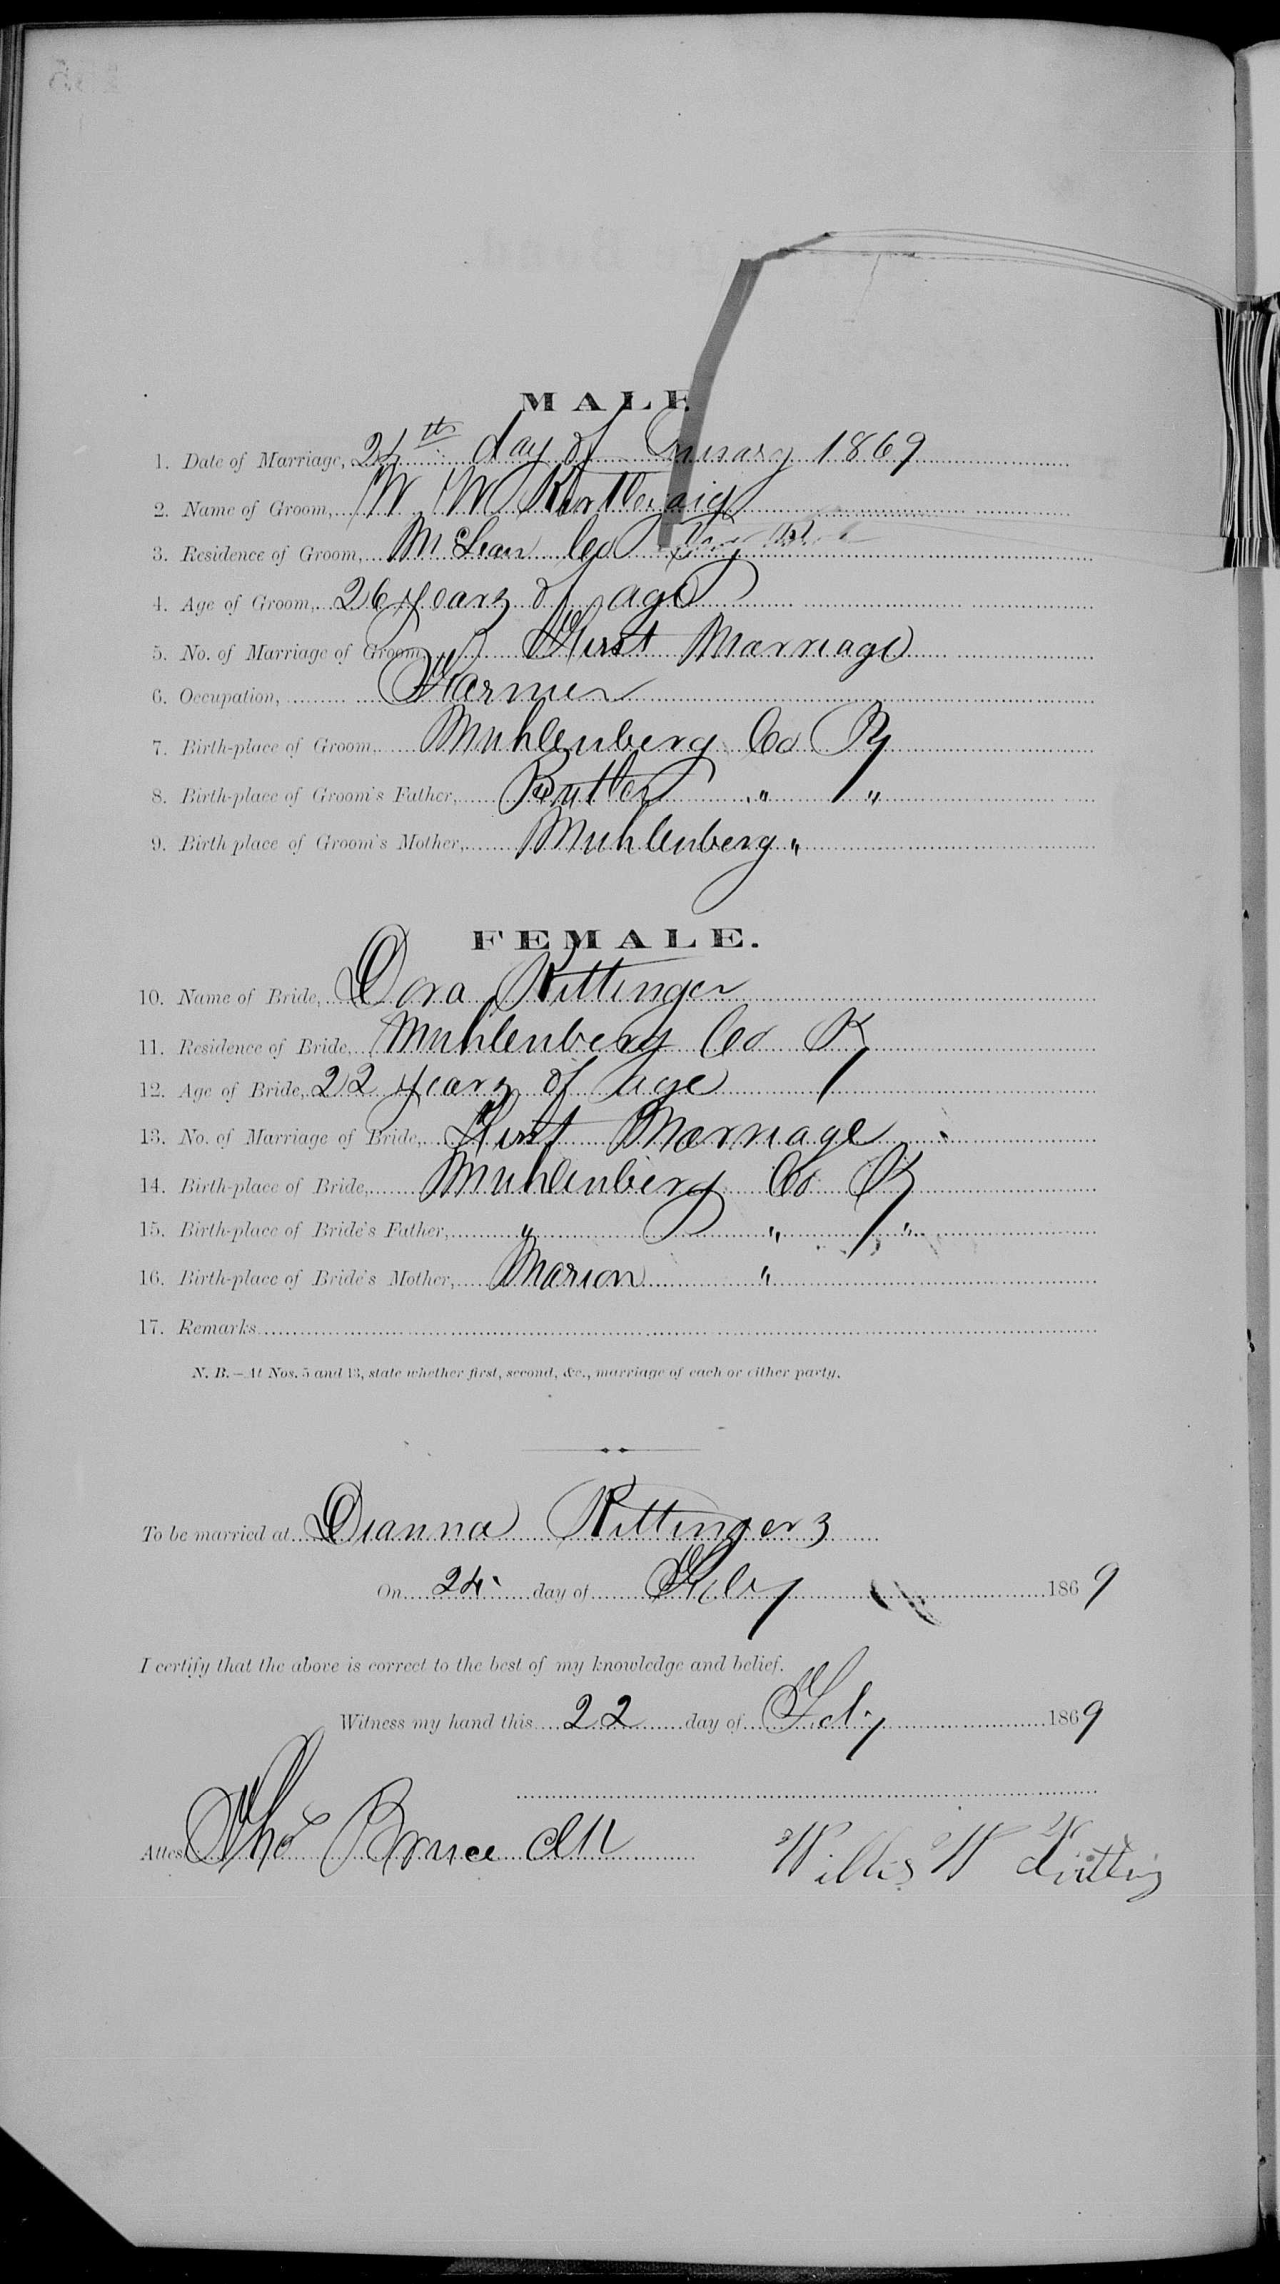 MALE
1. Date of Marriage, 24th day of uary 1869
2. Name of Groom, W W
3. Residence of Groom, McLean Co
4. Age of Groom, 26 years of age
5. No. of Marriage of Groom, First Marriage
6. Occupation, Farmer
7. Birth-place of Groom, Muhlenberg Co Ky
8. Birth-place of Groom's Father, Butler " "
9. Birth place of Groom's Mother, Muhlenberg "
FEMALE.
10. Name of Bride, Dora Kittinger
11. Residence of Bride, Muhlenberg Co Ky
12. Age of Bride, 22 years of age
13. No. of Marriage of Bride, First Marriage
14. Birth-place of Bride, Muhlenberg Co Ky
15. Birth-place of Bride's Father, " " "
16. Birth-place of Bride's Mother, Marion "
17. Remarks
N. B.—At Nos. 5 and 13, state whether first, second, &c., marriage of each or either party.
To be married at Dianna Kittingers
On 24 day of Feby 1869
I certify that the above is correct to the best of my knowledge and belief.
Witness my hand this 22 day of Feby 1869
Attest Tho Bruce Clk
Willis W